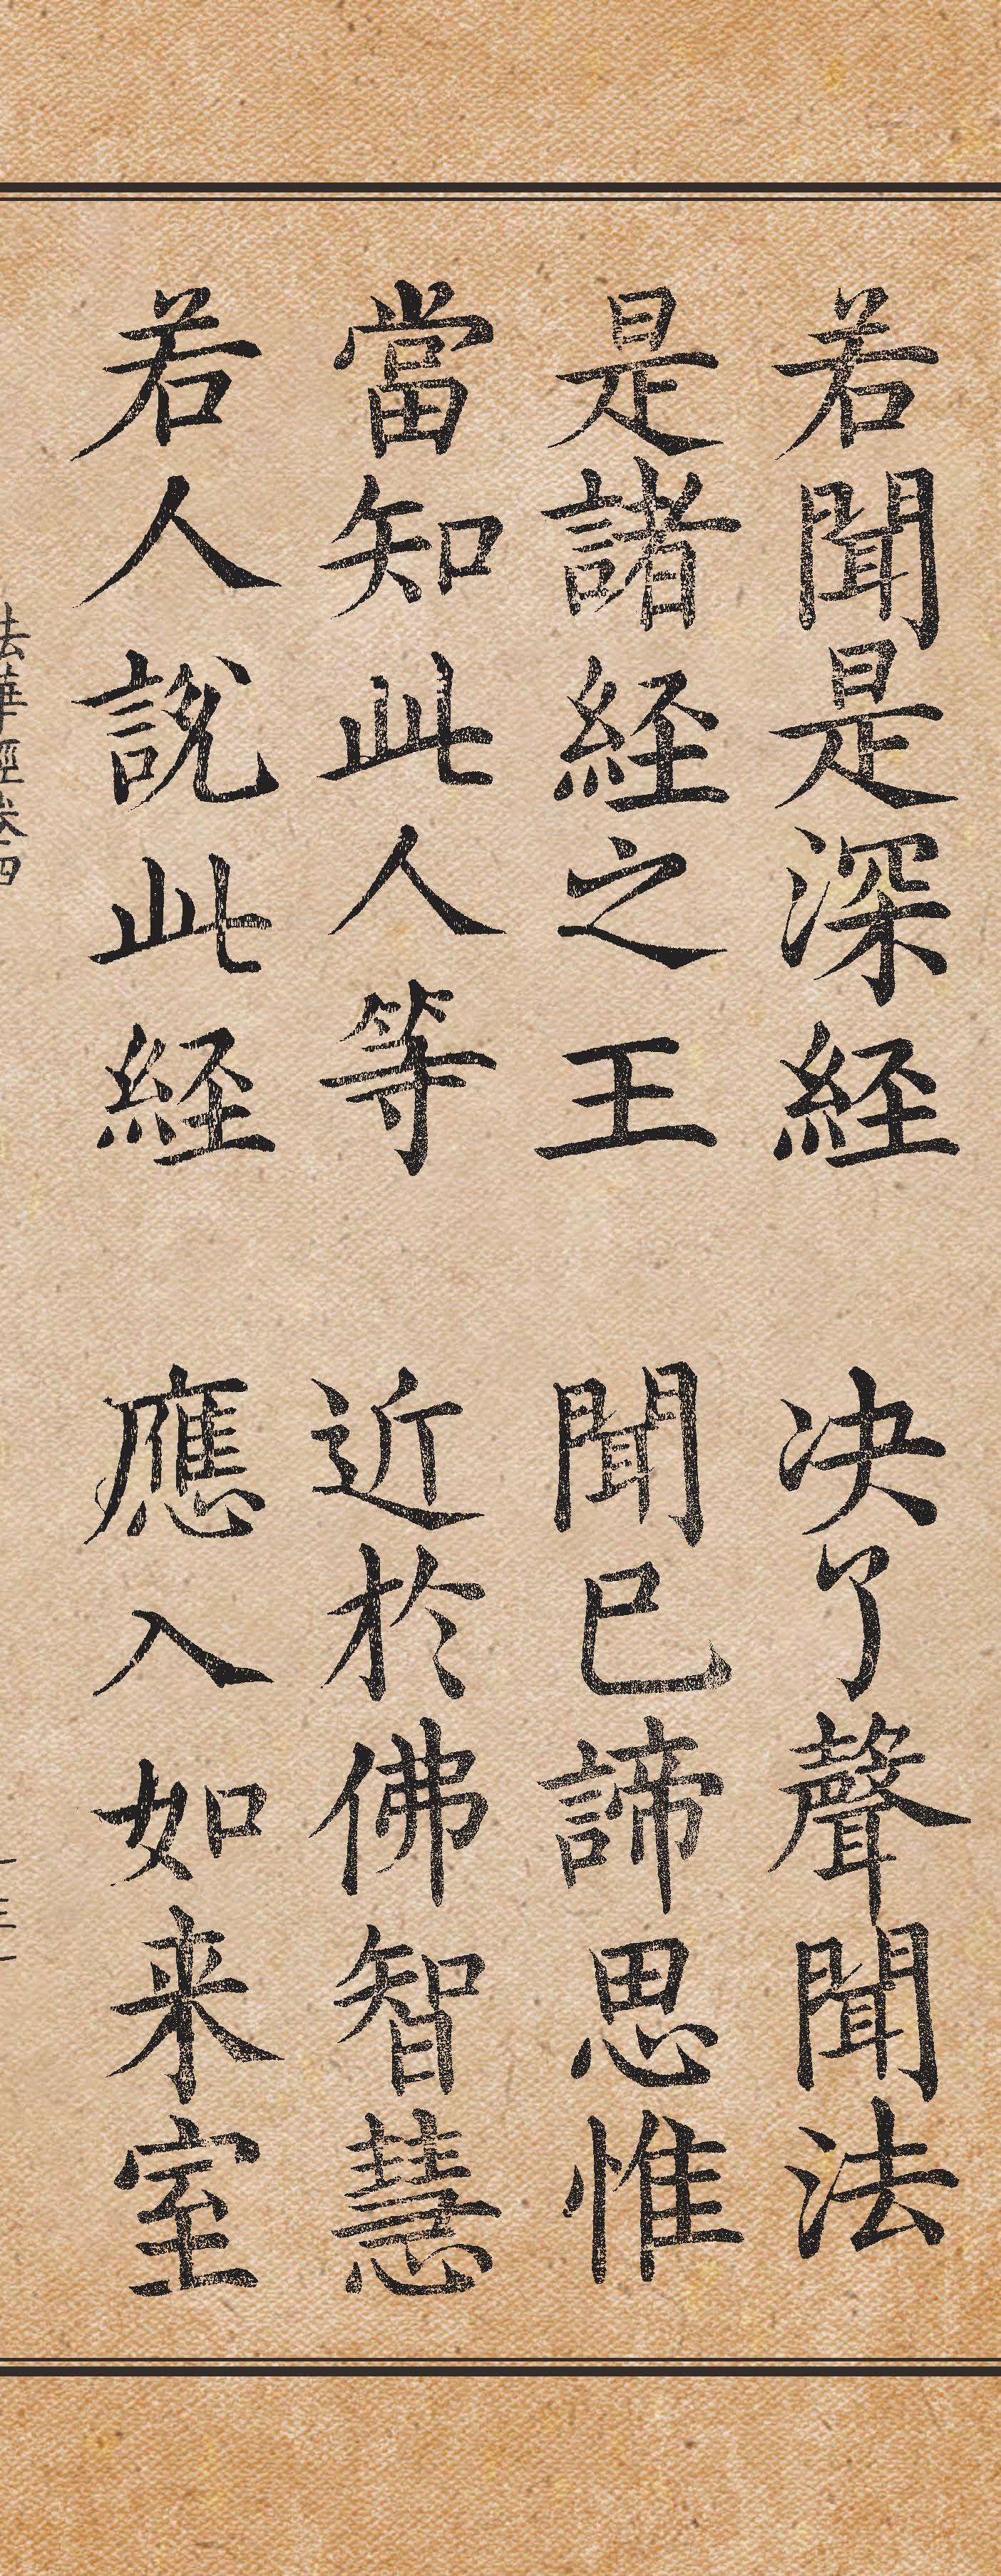 若聞是深経　決了聲聞法
是諸経之王　聞已諦思惟
當知此人等　近於佛智慧
若人說此経　應入如来室
法華經卷四